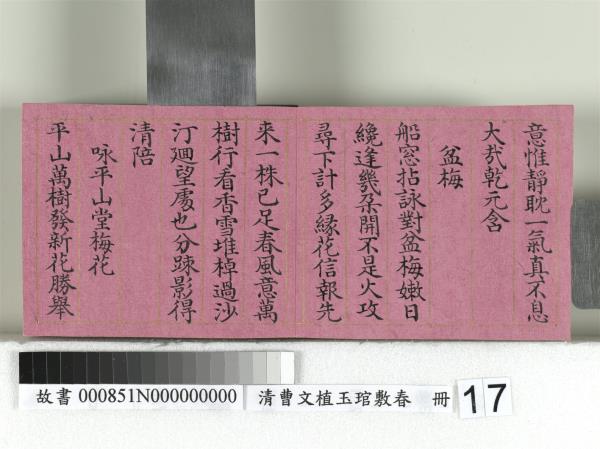 意惟靜耽一氣真不息
大哉乾元含
盆梅
船窓拈詠對盆梅嫩日
纔逢幾朶開不是火攻
尋下計多緣花信報先
來一株已足春風意萬
樹行看香雪堆棹過沙
汀廻望處也分踈影得
清陪
咏平山堂梅花
平山萬樹發新花勝舉
故書 000851N000000000
清曹文植玉琯敷春 冊
17